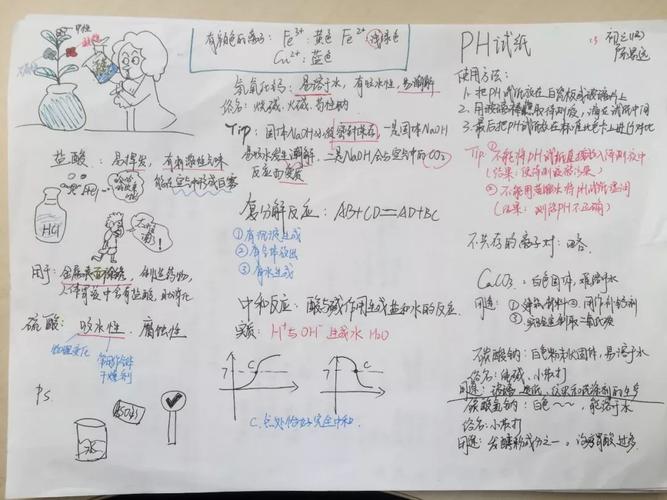 有颜色的离子: Fe³⁺: 黄色 Fe²⁺ 浅绿色
Cu²⁺: 蓝色
氢氧化钠: 易溶于水, 有吸水性, 易潮解
俗名: 烧碱、火碱、苛性钠
Tip: 固体NaOH必须密封保存, 一是固体NaOH
易吸水发生潮解, 二是NaOH会与空气中的CO₂
反应而变质
中性
酸性
盐酸: 易挥发, 有刺激性气味
能在空气中形成白雾
HCl
用于: 金属表面除锈, 制造药物,
人体胃液中含有盐酸, 助消化
硫酸: 吸水性、腐蚀性
物理变化
干燥剂
P.S.
复分解反应: AB+CD=AD+BC
①有沉淀生成
②有气体放出
③有水生成
中和反应: 酸与碱作用生成盐和水的反应.
实质: H⁺与OH⁻生成水 H₂O
7 C
7 C
C点处恰好完全中和.
PH试纸
使用方法:
1. 把PH试纸放在白瓷板或玻璃片上
2. 用玻璃棒蘸取待测液, 滴在试纸中间
3. 最后把PH试纸放在标准比色卡上进行对比
Tip: ①不能将PH试纸直接放入待测液中
(结果: 使待测液被污染)
②不能用蒸馏水将PH试纸湿润
(结果: 测的PH不正确)
不共存的离子对: 略.
CaCO₃: 白色固体, 难溶于水
用途: ①建筑材料 ②用作补钙剂
③实验室制取二氧化碳
碳酸钠: 白色粉末状固体, 易溶于水
俗名: 纯碱、小苏打
碳酸氢钠: 白色~~, 能溶于水
俗名: 小苏打
用途: 发酵粉成分之一, 治疗胃酸过多.